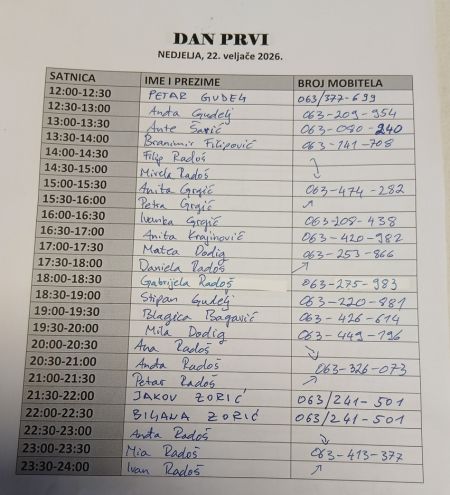 DAN PRVI
NEDJELJA, 22. veljače 2026.
SATNICA IME I PREZIME BROJ MOBITELA
12:00-12:30 PETAR GUDELJ 063/377-699
12:30-13:00 Anđa Gudelj 063-209-954
13:00-13:30 Ante Šarić 063-080-240
13:30-14:00 Branimir Filipović 063-141-708
14:00-14:30 Filip Radoš
14:30-15:00 Mirela Radoš
15:00-15:30 Anita Grgić 063-474-282
15:30-16:00 Petra Grgić
16:00-16:30 Ivanka Grgić 063-208-438
16:30-17:00 Anita Krajinović 063-420-982
17:00-17:30 Matea Dodig 063-253-866
17:30-18:00 Daniela Radoš
18:00-18:30 Gabrijela Radoš 063-275-983
18:30-19:00 Stipan Gudelj 063-220-881
19:00-19:30 Blagica Bagavić 063-426-614
19:30-20:00 Mila Dodig 063-449-196
20:00-20:30 Ana Radoš
20:30-21:00 Anđa Radoš 063-326-073
21:00-21:30 Petar Radoš
21:30-22:00 JAKOV ZORIĆ 063/241-501
22:00-22:30 BILJANA ZORIĆ 063/241-501
22:30-23:00 Anđa Radoš
23:00-23:30 Mia Radoš 063-413-377
23:30-24:00 Ivan Radoš